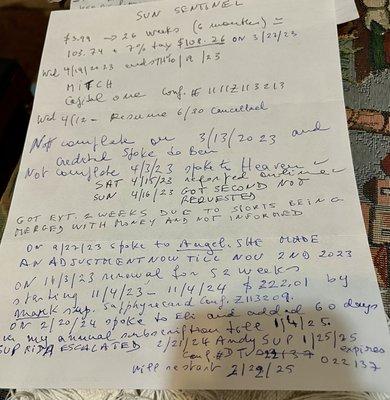 SUN SENTINEL
$3.99 → 26 weeks (6 months) =
103.74 + 7% tax $108.76 on 3/27/23
Wed 4/19/2023 ends 19/23
MITCH
Capital one Conf. # 1111Z113213
Wed 4/12 - Resume 6/30 Cancelled
Not complete on 3/13/2023 and
credited Spoke to Ben
Not complete 4/3/23 spoke to Heaven
SAT 4/15/23 reported online
SUN 4/16/23 GOT SECOND NOT
REQUESTED
GOT EXT. 2 WEEKS DUE TO SPORTS BEING
MERGED WITH MONEY AND NOT INFORMED
ON 9/27/23 spoke to Angel. SHE MADE
AN ADJUSTMENT NOW TILL NOV 2ND 2023
ON 11/3/23 renewal for 52 weeks
starting 11/4/23 - 11/4/24 $222.01 by
Mark sup. Sapphyre card Conf. Z113209.
ON 2/20/24 spoke to Eli and added 60 days
on my annual subscription till 1/4/25.
SUP RISA ESCALATED 2/21/24 Andy SUP 1/25/25
Conf. # expires
022137
will restart 2/29/25